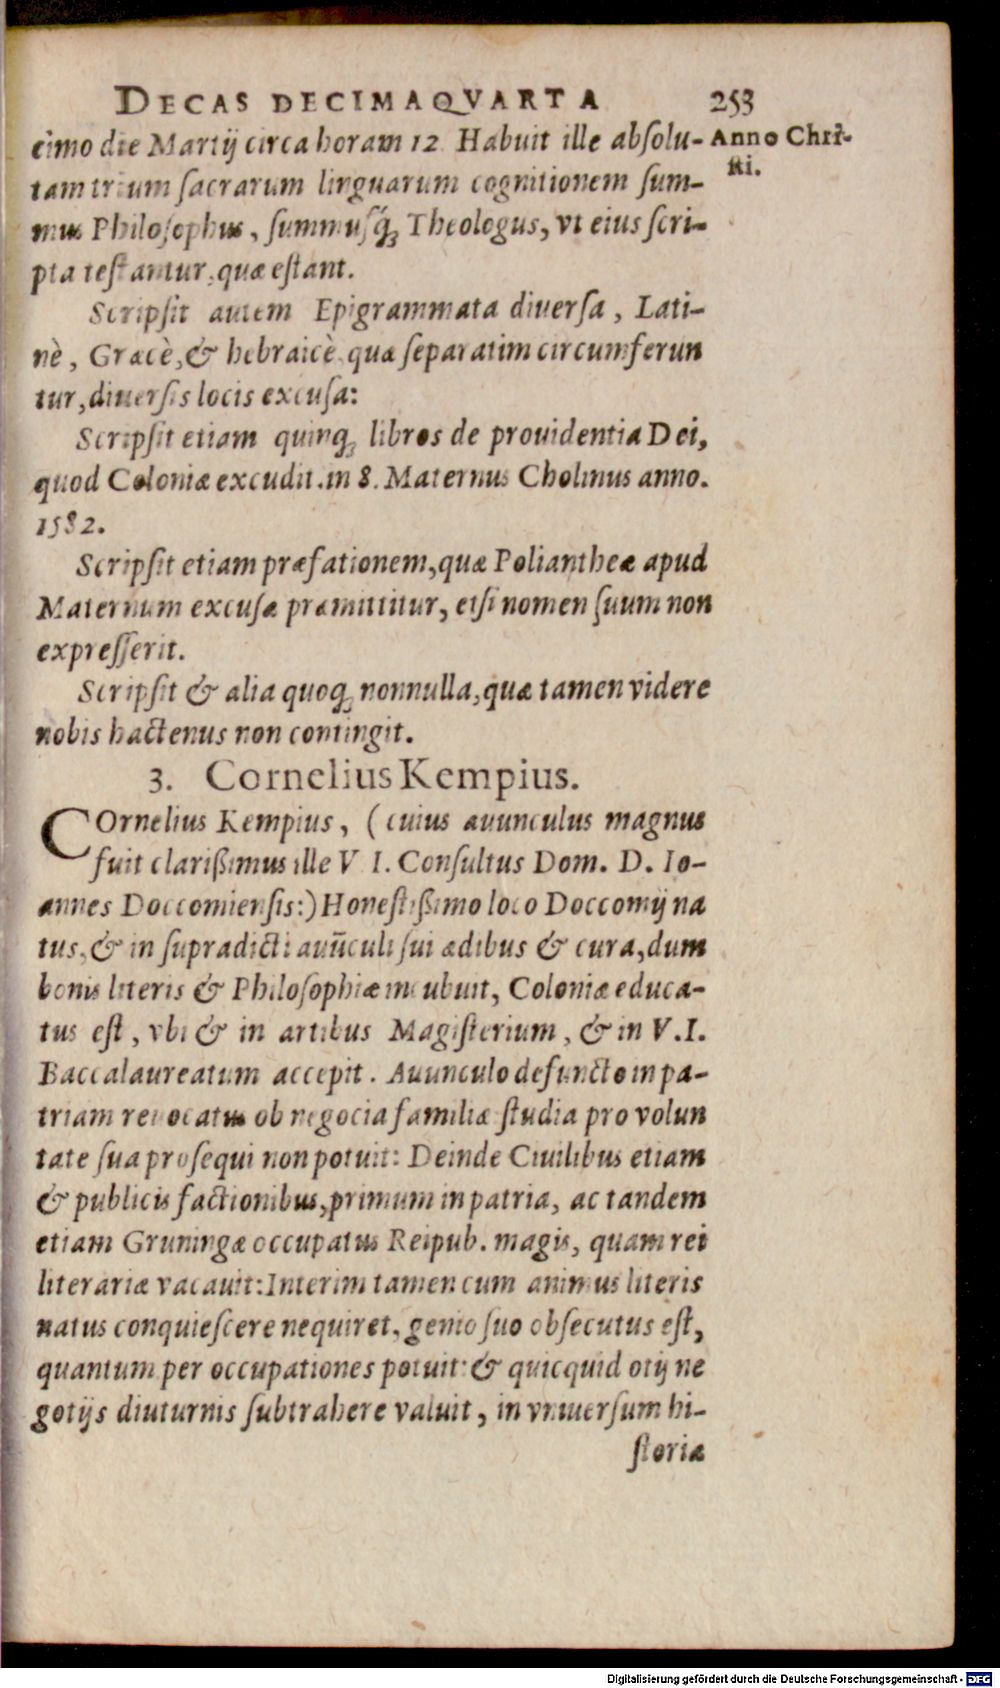 DECAS DECIMAQVARTA 253
cimo die Martij circa horam 12 Habuit ille absolu- Anno Chri-
tam trium sacrarum linguarum cognitionem sum- sti.
mus Philosophus, summusq́; Theologus, vt eius scri-
pta testantur, quæ estant.
Scripsit autem Epigrammata diuersa, Lati-
nè, Græcè, & hebraicè quæ separatim circumferun
tur, diuersis locis excusa:
Scripsit etiam quinq; libros de prouidentia Dei,
quod Coloniæ excudit. in 8. Maternus Cholinus anno.
1582.
Scripsit etiam præfationem, quæ Poliantheæ apud
Maternum excusæ præmittitur, etsi nomen suum non
expresserit.
Scripsit & alia quoq; nonnulla, quæ tamen videre
nobis hactenus non contingit.
3. Cornelius Kempius.
COrnelius Kempius, (cuius auunculus magnus
fuit clarißimus ille V I. Consultus Dom. D. Io-
annes Doccomiensis:) Honestißimo loco Doccomij na
tus, & in supradicti auũculi sui ædibus & cura, dum
bonis literis & Philosophiæ incubuit, Coloniæ educa-
tus est, vbi & in artibus Magisterium, & in V.I.
Baccalaureatum accepit. Auunculo defuncto in pa-
triam reuocatus ob negocia familiæ studia pro volun
tate sua prosequi non potuit: Deinde Ciuilibus etiam
& publicis factionibus, primum in patria, ac tandem
etiam Gruningæ occupatus Reipub. magis, quam rei
literariæ vacauit: Interim tamen cum animus literis
natus conquiescere nequiret, genio suo obsecutus est,
quantum per occupationes potuit: & quicquid otij ne
gotijs diuturnis subtrahere valuit, in vniuersum hi-
storiæ
Digitalisierung gefördert durch die Deutsche Forschungsgemeinschaft - DFG